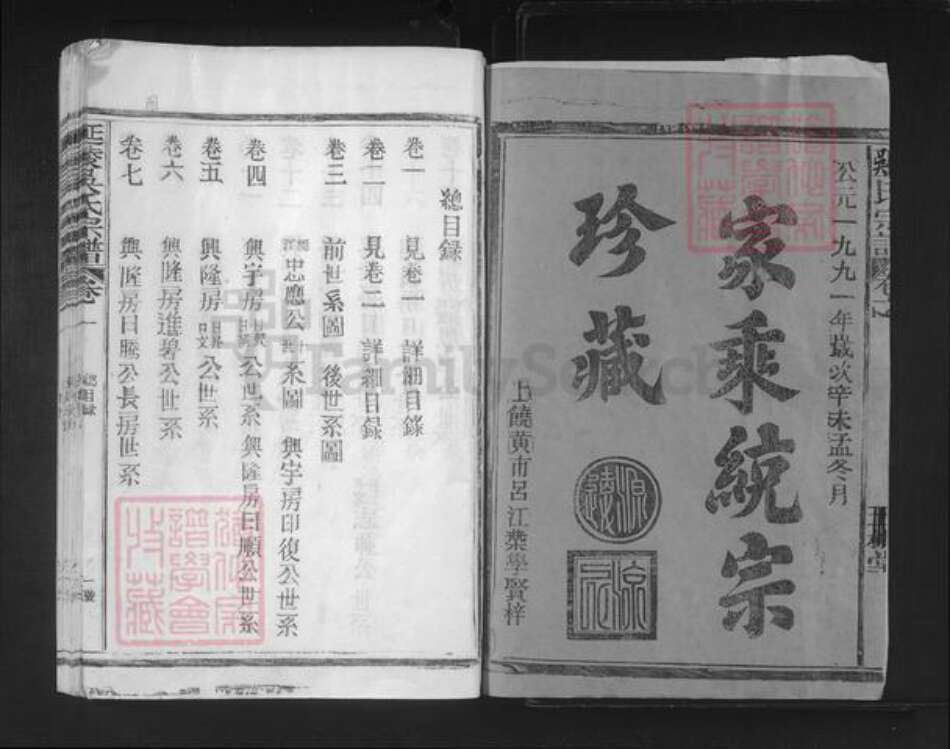 公元一九九一年歲次辛未孟冬月
家乘統宗
珍藏
上饒黄市呂 江葉學賢梓
總目録
卷一 見卷一詳細目錄
卷二 見卷二詳細目録
卷三 前世系圖 後世系圖
忠應公 世系圖 興宇房印復公世系
卷四 興宇房 公世系 興隆房日順公世系
卷五 興隆房 公世系
卷六 興隆房進碧公世系
卷七 興隆房日騰公長房世系
延陵吳氏宗譜 卷一
總目録
FamilySearch
譜學會
收藏